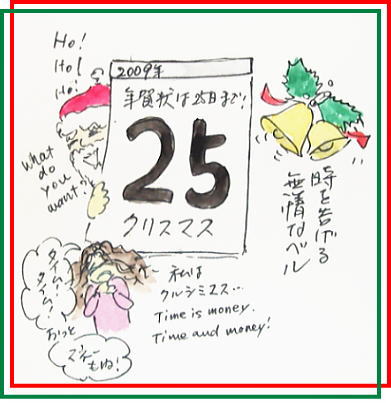 Ho!
Ho!
Ho!
2009年
年賀状は25日まで!
25
クリスマス
What
do
you
want?
時を告げる
無情なベル
タイム!
タイム!
おっと
マネーもね!
私は
クルシミマス…
Time is money.
Time and money!